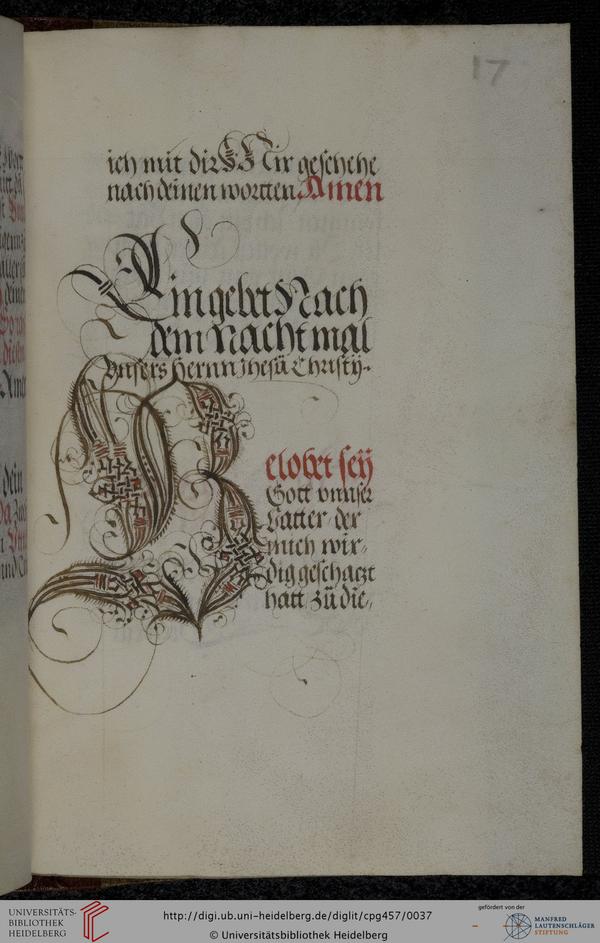 17
ich mit dir Mir geschehe
nach deinen wortten Amen
Ein gebet Nach
dem Nachtmal
Unsers Hernn Jhesü Christÿ.
Gelobet seÿ
Gott vnnser
Vatter der
mich wir,
dig geschaczt
hatt zü die,
UNIVERSITÄTS-
BIBLIOTHEK
HEIDELBERG
http://digi.ub.uni-heidelberg.de/diglit/cpg457/0037
© Universitätsbibliothek Heidelberg
gefördert von der
MANFRED
LAUTENSCHLÄGER
STIFTUNG